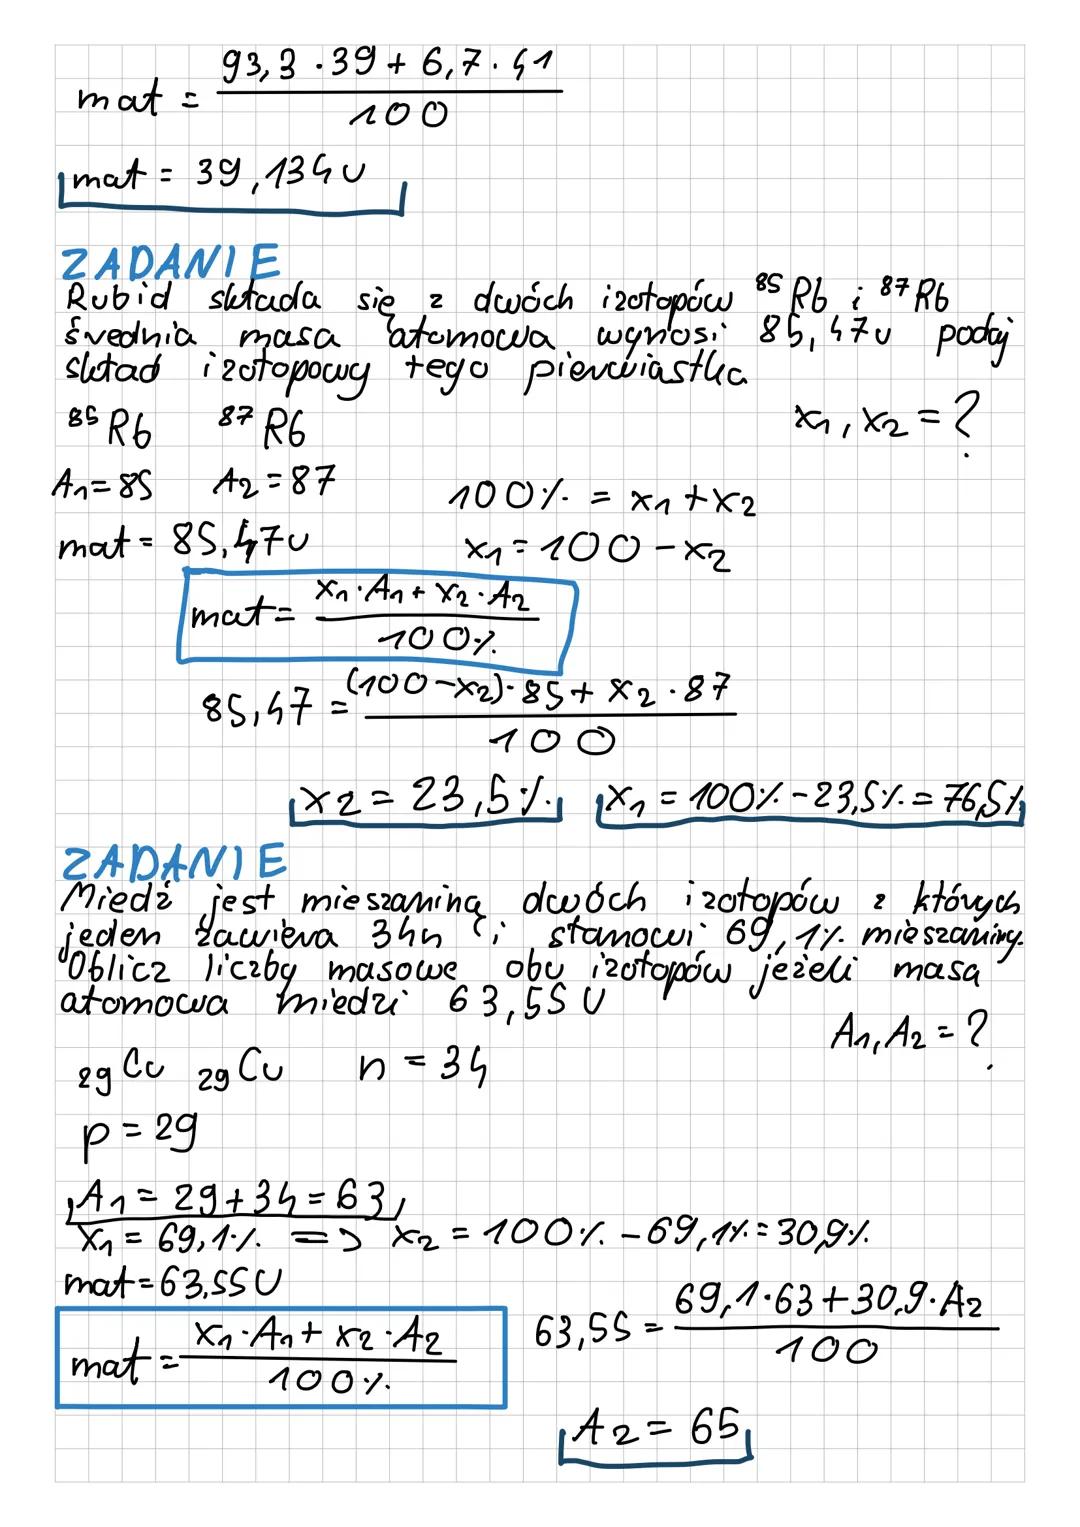 mat = (93,3 · 39 + 6,7 · 41) / 100
mat = 39,134 u
ZADANIE
Rubid składa się z dwóch izotopów ⁸⁵Rb i ⁸⁷Rb
średnia masa atomowa wynosi 85,47u podaj
skład izotopowy tego pierwiastka
⁸⁵Rb ⁸⁷Rb x₁, x₂ = ?
A₁ = 85 A₂ = 87 100% = x₁ + x₂
mat = 85,47u x₁ = 100 - x₂
mat = (x₁ · A₁ + x₂ · A₂) / 100%
85,47 = ((100 - x₂) · 85 + x₂ · 87) / 100
x₂ = 23,5% x₁ = 100% - 23,5% = 76,5%
ZADANIE
Miedź jest mieszaniną dwóch izotopów z których
jeden zawiera 34n i stanowi 69,1% mieszaniny.
Oblicz liczby masowe obu izotopów jeżeli masa
atomowa miedzi 63,55 U
A₁, A₂ = ?
₂₉Cu ₂₉Cu n = 34
p = 29
A₁ = 29 + 34 = 63
x₁ = 69,1% => x₂ = 100% - 69,1% = 30,9%
mat = 63,55 U
mat = (x₁ · A₁ + x₂ · A₂) / 100% 63,55 = (69,1 · 63 + 30,9 · A₂) / 100
A₂ = 65